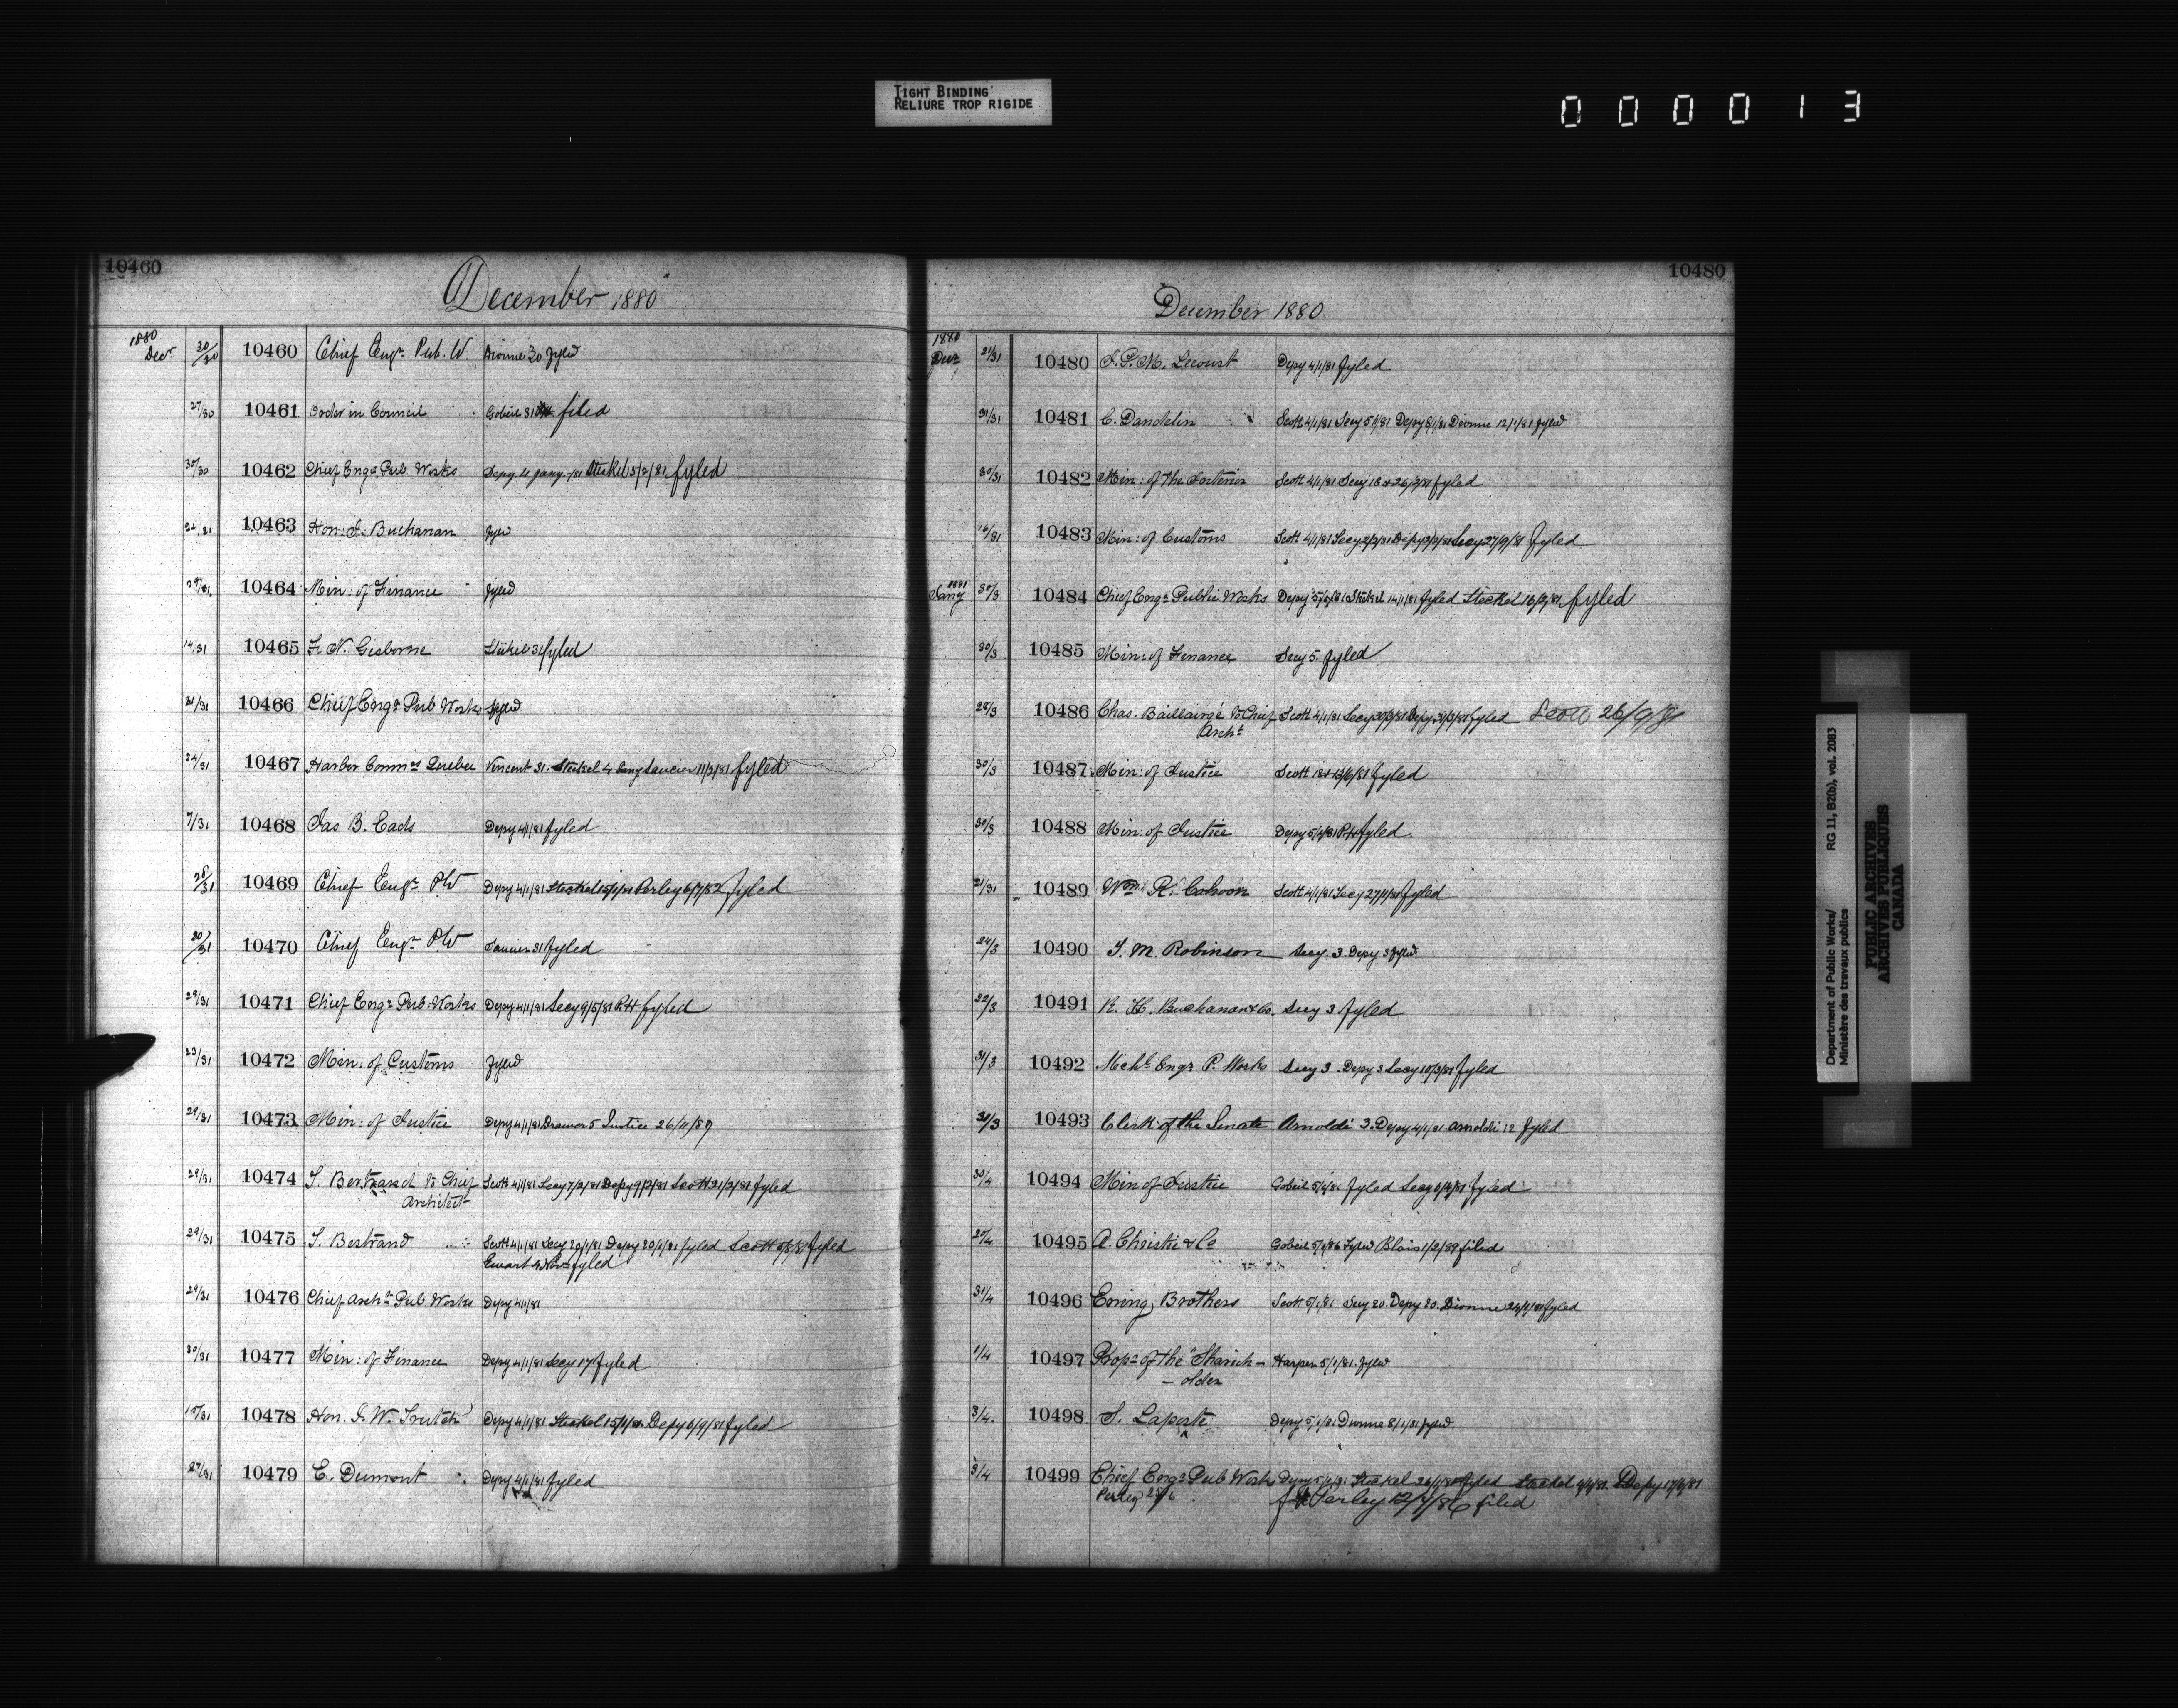 TIGHT BINDING
RELIURE TROP RIGIDE
000013
10460
December 1880
1880
Decr 30/30 10460 Chief Engr. Pub. W. Dionne 30 fyled
27/30 10461 Order in Council Gobeil 31 filed
30/30 10462 Chief Engr Pub Works Depy 4 Jany /81 Steckel 5/2/81 fyled
24/31 10463 Hon: I. Buchanan fyled
29/31 10464 Min: of Finance fyled
14/31 10465 F. N. Gisborne Steckel 31 fyled
31/31 10466 Chief Engr Pub Works fyled
24/31 10467 Harbor Commrs Quebec Vincent 31. Steckel 4 Jany Saucier 11/3/81 fyled
7/31 10468 Jas B. Eads Depy 4/1/81 fyled
28/31 10469 Chief Engr. P.W Depy 4/1/81 Steckel Perley 6/7/82 fyled
30/31 10470 Chief Engr. P.W Saucier 31 fyled
29/31 10471 Chief Engr Pub. Works Depy 4/1/81 Secy 9/5/81 RH fyled
23/31 10472 Min: of Customs fyled
29/31 10473 Min: of Justice Depy 4/1/81 Drawer 5 Justice 26/11/87
29/31 10474 S. Bertrand Vs Chief Scott 4/1/81 Secy 7/2/81 Depy 9/2/81 Scott 21/2/81 fyled
Architect
29/31 10475 S. Bertrand Scott 4/1/81 Secy 20/1/81 Depy 20/1/81 fyled Scott fyled
Ewart 4 Nov fyled
29/31 10476 Chief Archt Pub Works Depy 4/1/81
30/31 10477 Min: of Finance Depy 4/1/81 Secy 17 fyled
15/31 10478 Hon. J. W. Trutch Depy 4/1/81 Steckel 15/1/81 Depy 6/9/81 fyled
27/31 10479 E. Dumont Depy 4/1/81 fyled
10480
December 1880
1880
Decr 21/31 10480 Lecourt Depy 4/1/81 fyled
31/31 10481 C. Dandelin Scott 4/1/81 Secy 5/1/81 Depy 8/1/81 Dionne 12/1/81 fyled
30/31 10482 Min: of the Interior Scott 4/1/81 Secy 18 & 26/2/81 fyled
16/31 10483 Min: of Customs Scott 4/1/81 Secy 2/2/81 Depy 3/2/81 Secy 27/9/81 fyled
1881
Jany 30/3 10484 Chief Engr Public Works Depy 5/1/81 Steckel 14/1/81 fyled Steckel fyled
30/3 10485 Min: of Finance Secy 5. fyled
28/3 10486 Chas. Baillairgé Vs Chief Scott 4/1/81 Secy Depy fyled Scott 26/9/81
Archt
30/3 10487 Min: of Justice Scott fyled
30/3 10488 Min: of Justice Depy 5/1/81 RH fyled
21/31 10489 Wm. R. Cahoon Scott 4/1/81 Secy 27/1/81 fyled
24/3 10490 T. M. Robinson Secy. 3. Depy 3 fyled
22/3 10491 R. H. Buchanan & Co. Secy 3 fyled
31/3 10492 Mechl Engr P. Works Secy 3. Depy 3 Secy 10/3/81 fyled
31/3 10493 Clerk of the Senate Arnoldi 3. Depy 4/1/81 Arnoldi 12 fyled
30/4 10494 Min of Justice Gobeil 5/1/81 fyled Secy fyled
27/4 10495 A. Christie & Co Gobeil fyled Blais 1/2/89 filed
31/4 10496 Ewing Brothers Scott 5/1/81 Secy 20. Depy 20. Dionne 24/1/81 fyled
1/4 10497 Propr of the "Shareh-
-older Harper 5/1/81. fyled
3/4 10498 S. Laporte Depy 5/1/81 Dionne 8/1/81 fyled
3/4 10499 Chief Engr Pub Works Depy 5/1/81 Steckel 26/1/81 fyled Steckel Depy
Perley 28/6 Perley 12/7/86 filed
Department of Public Works/ RG 11, B2(b), vol. 2083
Ministère des travaux publics
PUBLIC ARCHIVES
ARCHIVES PUBLIQUES
CANADA